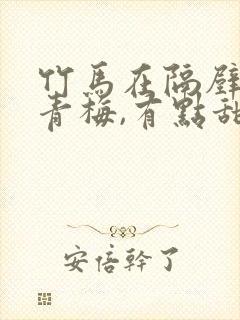 竹馬在隔壁
青梅,有點甜
安倍幹了